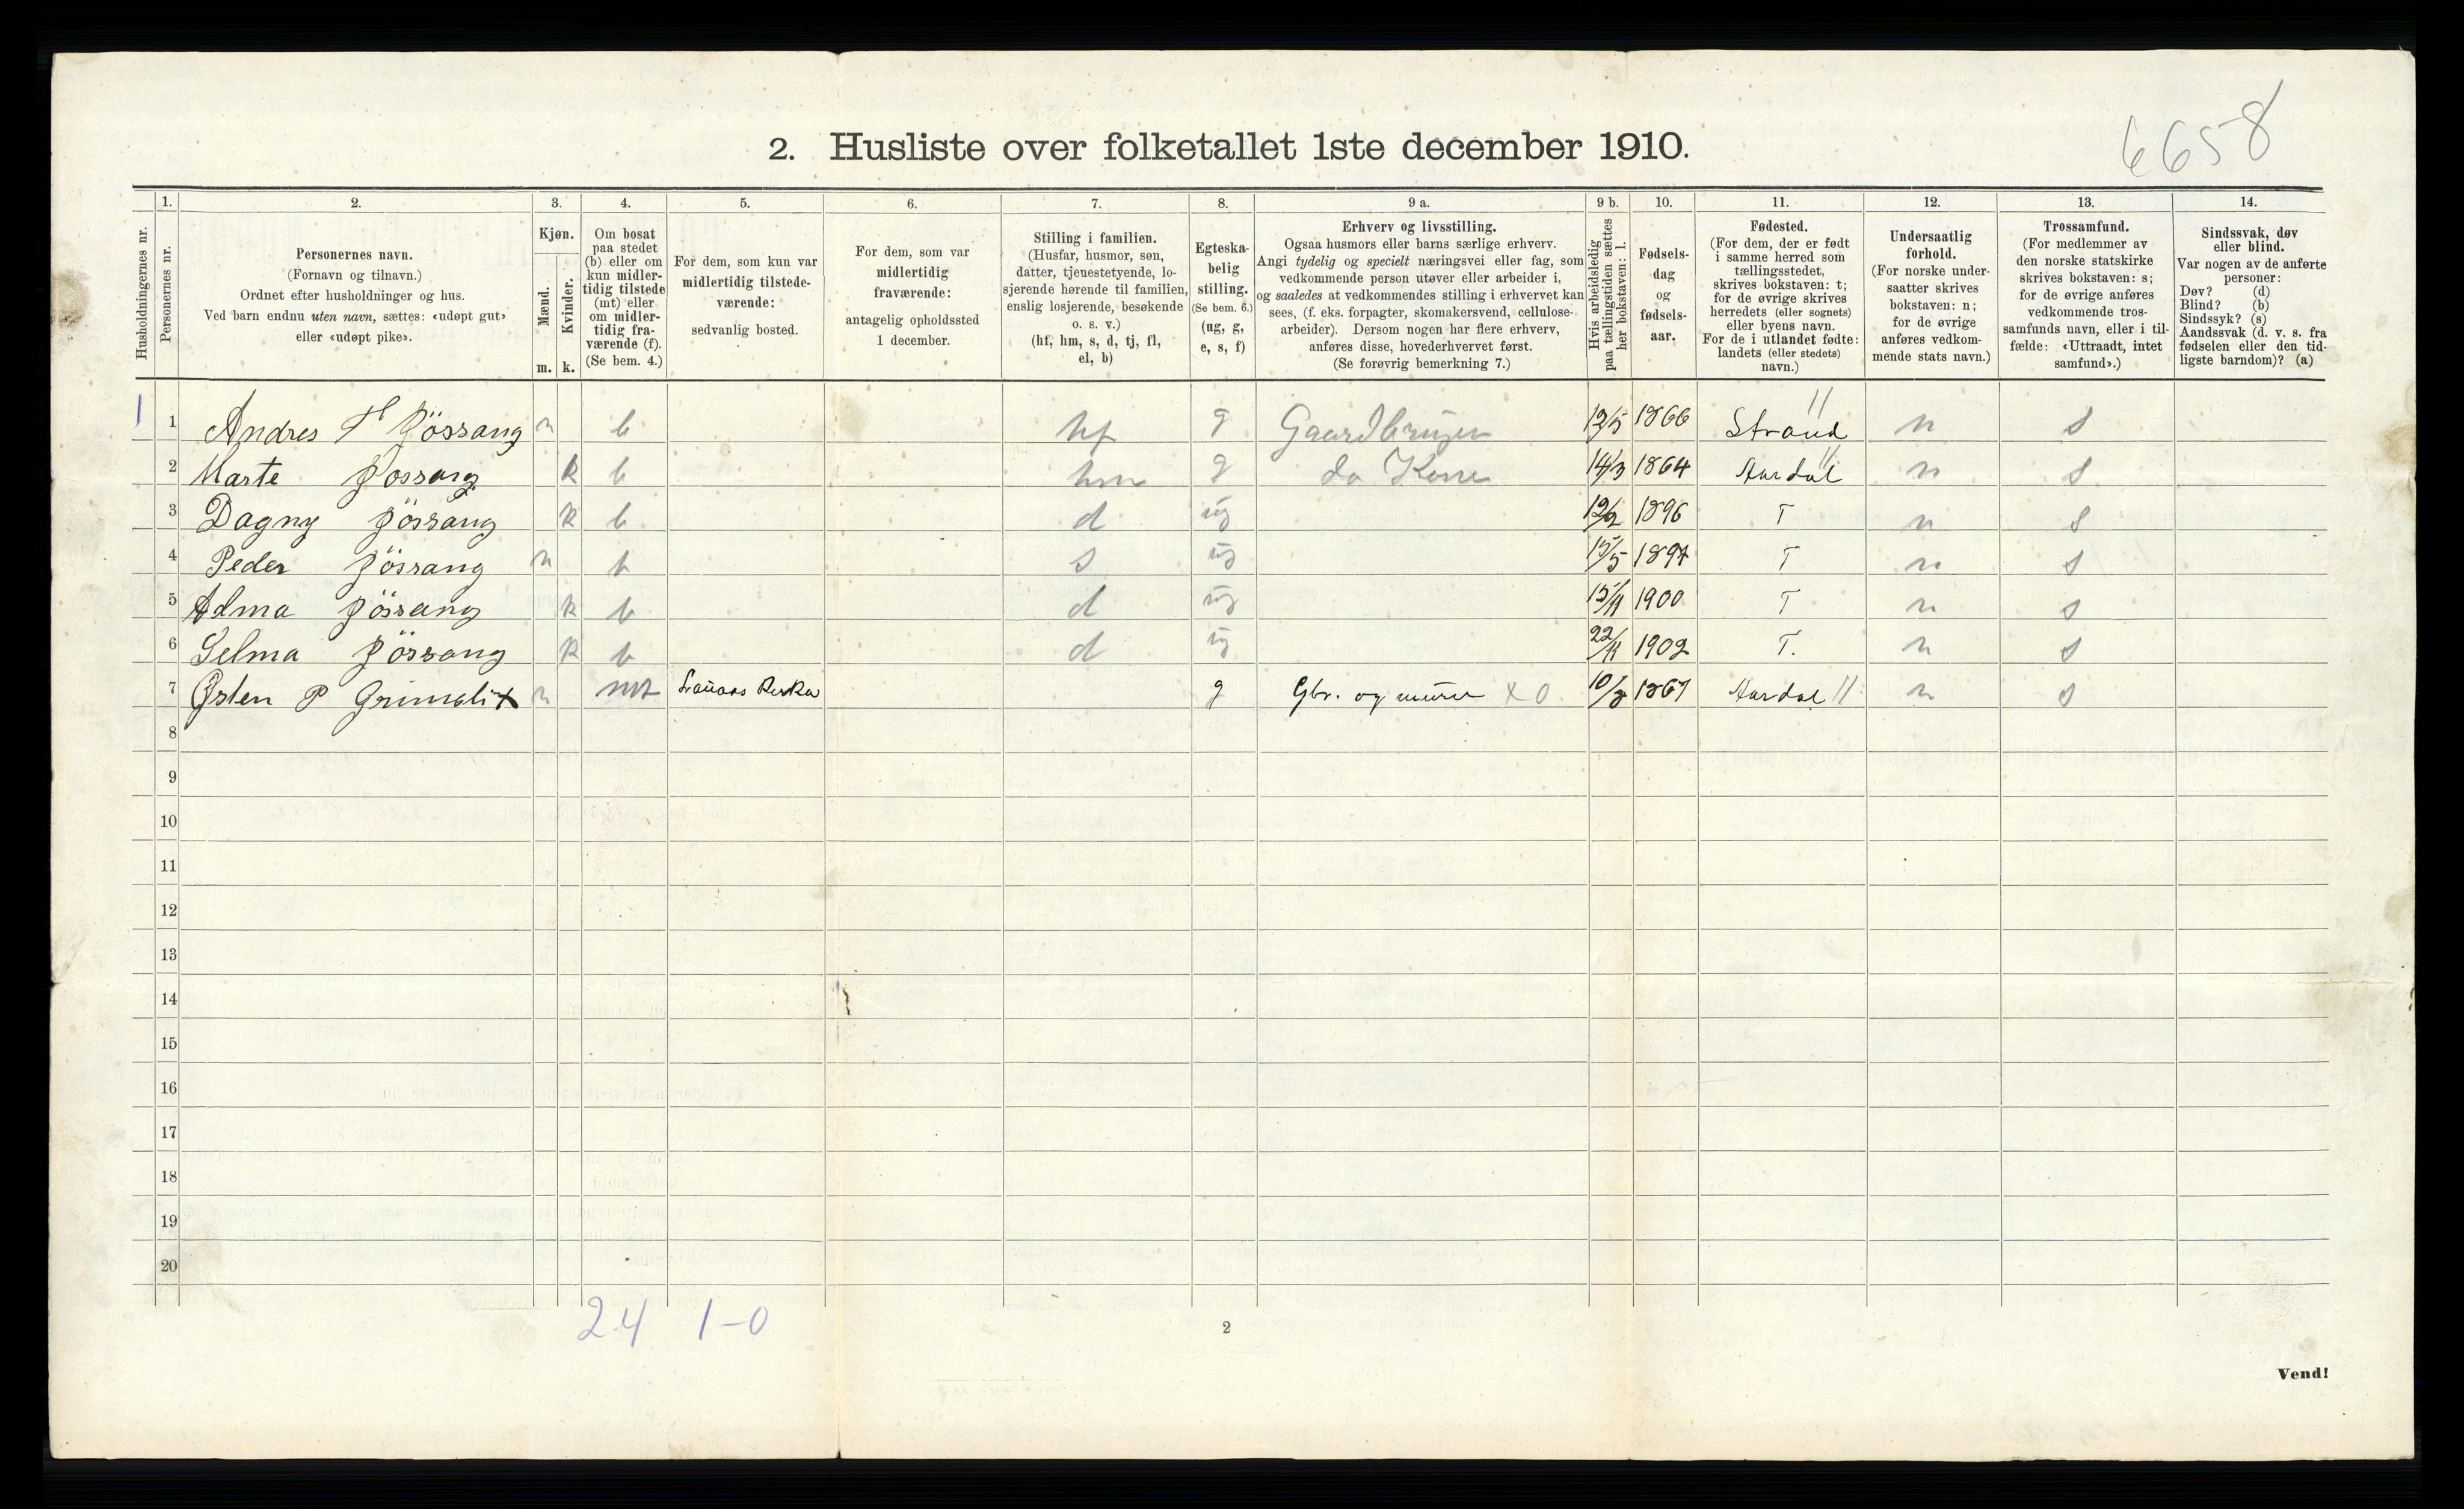 6658
2. Husliste over folketallet 1ste december 1910.
1. 2. 3. 4. 5. 6. 7. 8. 9 a. 9 b. 10. 11. 12. 13. 14.
Husholdningernes nr.
Personernes nr.
Personernes navn.
(Fornavn og tilnavn.)
Ordnet efter husholdninger og hus.
Ved barn endnu uten navn, sættes: «udøpt gut»
eller «udøpt pike».
Kjøn.
Mænd.
Kvinder.
m. k.
Om bosat
paa stedet
(b) eller om
kun midler-
tidig tilstede
(mt) eller
om midler-
tidig fra-
værende (f).
(Se bem. 4.)
For dem, som kun var
midlertidig tilstede-
værende:
sedvanlig bosted.
For dem, som var
midlertidig
fraværende:
antagelig opholdssted
1 december.
Stilling i familien.
(Husfar, husmor, søn,
datter, tjenestetyende, lo-
sjerende hørende til familien,
enslig losjerende, besøkende
o. s. v.)
(hf, hm, s, d, tj, fl,
el, b)
Egteska-
belig
stilling.
(Se bem. 6.)
(ug, g,
e, s, f)
Erhverv og livsstilling.
Ogsaa husmors eller barns særlige erhverv.
Angi tydelig og specielt næringsvei eller fag, som
vedkommende person utøver eller arbeider i,
og saaledes at vedkommendes stilling i erhvervet kan
sees, (f. eks. forpagter, skomakersvend, cellulose-
arbeider). Dersom nogen har flere erhverv,
anføres disse, hovederhvervet først.
(Se forøvrig bemerkning 7.)
Hvis arbeidsledig
paa tællingstiden sættes
her bokstaven: l.
Fødsels-
dag
og
fødsels-
aar.
Fødested.
(For dem, der er født
i samme herred som
tællingsstedet,
skrives bokstaven: t;
for de øvrige skrives
herredets (eller sognets)
eller byens navn.
For de i utlandet fødte:
landets (eller stedets)
navn.)
Undersaatlig
forhold.
(For norske under-
saatter skrives
bokstaven: n;
for de øvrige
anføres vedkom-
mende stats navn.)
Trossamfund.
(For medlemmer av
den norske statskirke
skrives bokstaven: s;
for de øvrige anføres
vedkommende tros-
samfunds navn, eller i til-
fælde: «Uttraadt, intet
samfund».)
Sindssvak, døv
eller blind.
Var nogen av de anførte
personer:
Døv? (d)
Blind? (b)
Sindssyk? (s)
Aandssvak (d. v. s. fra
fødselen eller den tid-
ligste barndom)? (a)
1 1 Andres T Jössang m b hf g Gaardbruger 12/5 1866 Strand n s
2 Marte Jössang k b hm g do Kone 14/3 1864 Aardal n s
3 Dagny Jössang k b d ug 12/2 1896 T n s
4 Peder Jössang m b s ug 15/5 1897 T n s
5 Alma Jössang k b d ug 15/11 1900 T n s
6 Selma Jössang k b d ug 22/11 1902 T. n s
7 Østen P m mt g Gbr. og murer x 0 10/8 1867 Aardal n s
8
9
10
11
12
13
14
15
16
17
18
19
20
24 1-0
2
Vend!